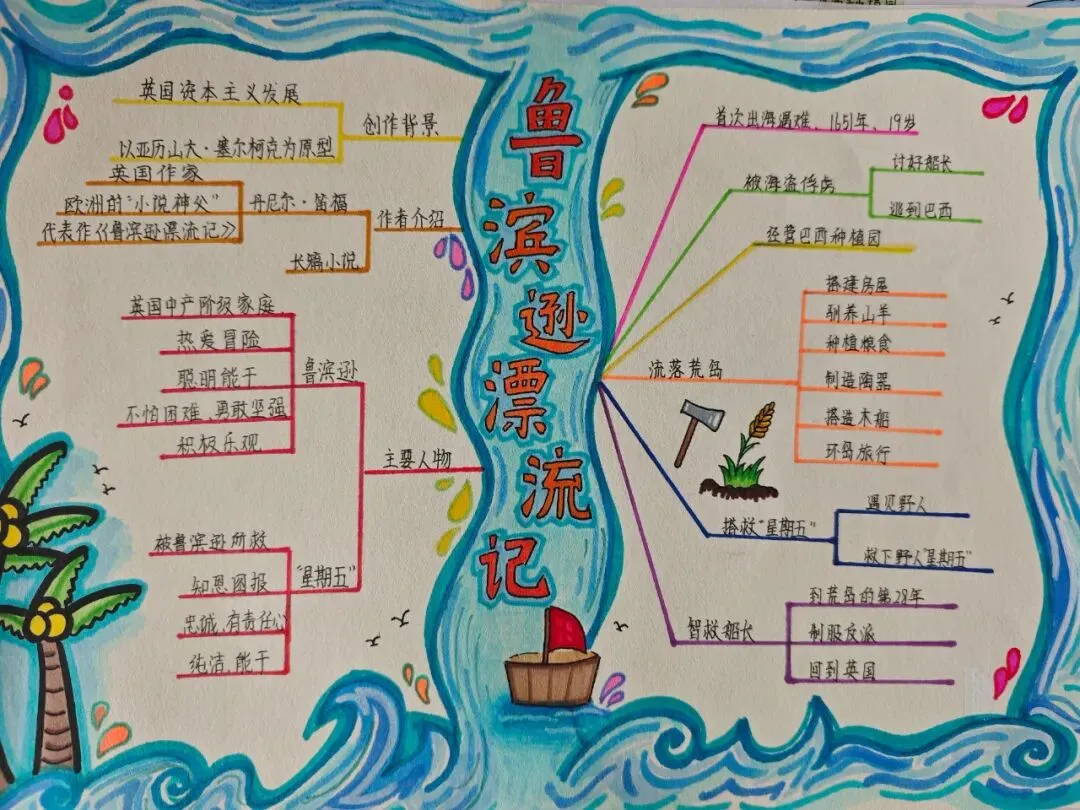 鲁滨逊漂流记
英国资本主义发展
以亚历山大·塞尔柯克为原型
创作背景
英国作家
欧洲的“小说神父”
代表作《鲁滨逊漂流记》
丹尼尔·笛福
长篇小说
作者介绍
英国中产阶级家庭
热爱冒险
聪明能干
不怕困难、勇敢坚强
积极乐观
鲁滨逊
主要人物
被鲁滨逊所救
知恩图报
忠诚、有责任心
纯洁、能干
“星期五”
首次出海遇难、1651年、19岁
被海盗俘虏
讨好船长
逃到巴西
经营巴西种植园
流落荒岛
搭建房屋
驯养山羊
种植粮食
制造陶器
搭造木船
环岛旅行
搭救“星期五”
遇见野人
救下野人“星期五”
智救船长
到荒岛的第28年
制服反派
回到英国